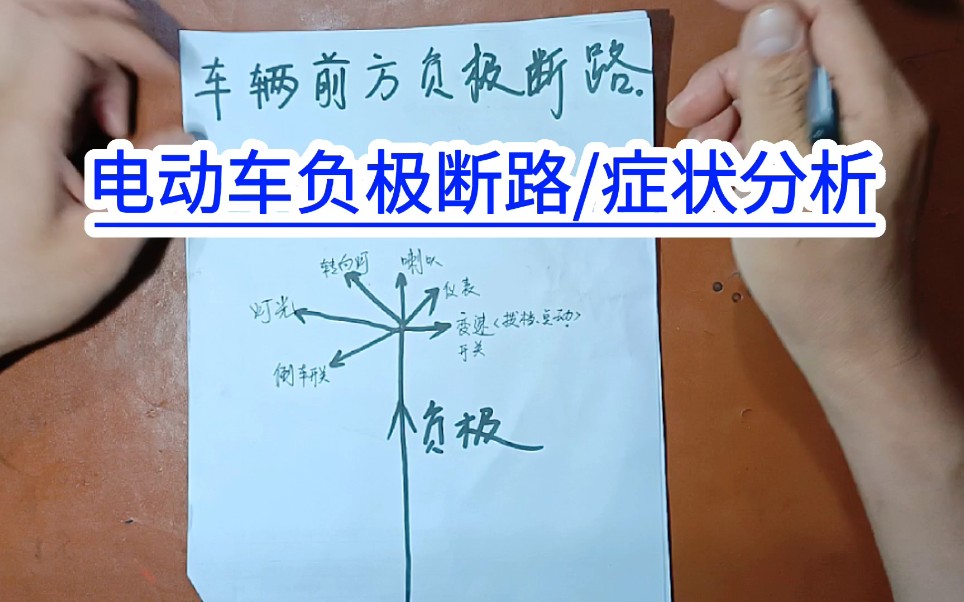 车辆前方负极断路.
电动车负极断路/症状分析
转向灯
喇叭
仪表
灯光
变速（拨档、点动）
开关
倒车开关
负极